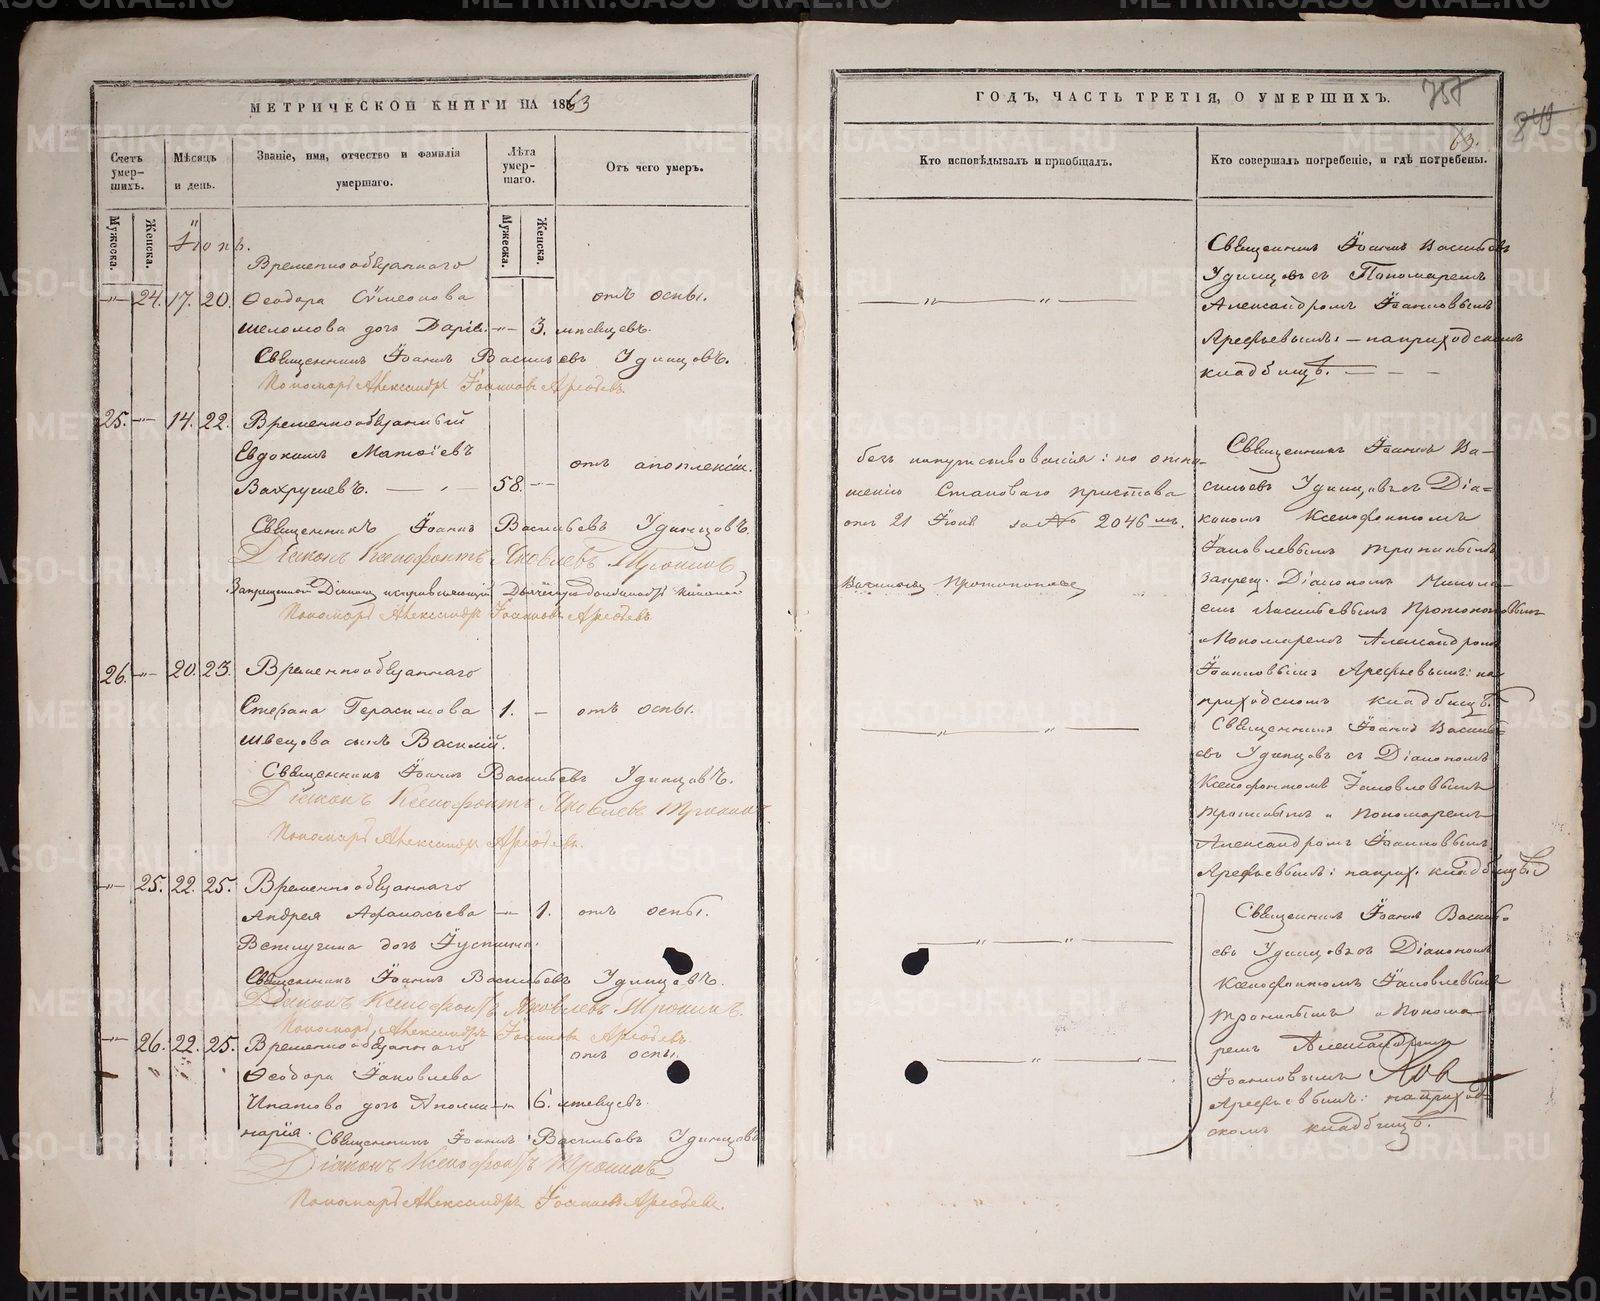 МЕТРИЧЕСКОЙ КНИГИ НА 1863
Счетъ умершихъ.
Мѣсяцъ и день.
Званіе, имя, отчество и фамилія умершаго.
Лѣта умершаго.
Отъ чего умеръ.
Мужеска.
Женска.
Мужеска.
Женска.
Іюнь.
Временнообязаннаго
24. 17. 20. Ѳеодора Сѵмеонова отъ оспы.
Шеломова дочь Дарія. 3. мѣсяцевъ.
Священникъ Іоаннъ Васильевъ Удинцовъ.
Пономарь Александръ Іоанновъ Арефьевъ
25. 14. 22. Временнообязанный
Евдокимъ Матѳіевъ отъ апоплексіи.
Вахрушевъ. 58.
Священникъ Іоаннъ Васильевъ Удинцовъ.
Діаконъ Ксенофонтъ Яковлевъ Тронинъ
Запрещенный Діаконъ исправляющій
Пономарь Александръ Іоанновъ Арефьевъ
26. 20. 23. Временнообязаннаго
Стефана Герасимова 1. отъ оспы.
Швецова сынъ Василій.
Священникъ Іоаннъ Васильевъ Удинцовъ.
Діаконъ Ксенофонтъ Яковлевъ Тронинъ
Пономарь Александръ Арефьевъ.
25. 22. 25. Временнообязаннаго
Андрея Аѳанасьева 1. отъ оспы.
Ветлугина дочь Іустина.
Священникъ Іоаннъ Васильевъ Удинцовъ.
Діаконъ Ксенофонтъ Яковлевъ Тронинъ.
Пономарь Александръ Іоанновъ Арефьевъ.
26. 22. 25. Временнообязаннаго отъ оспы.
Ѳеодора Іаковлева
Ипатова дочь Аполли- 6. мѣсяцевъ.
нарія. Священникъ Іоаннъ Васильевъ Удинцовъ
Діаконъ Ксенофонтъ Тронинъ
Пономарь Александръ Іоанновъ Арефьевъ.
ГОДЪ, ЧАСТЬ ТРЕТІЯ, О УМЕРШИХЪ.
849
63.
Кто исповѣдывалъ и пріобщалъ.
Кто совершалъ погребеніе, и гдѣ погребены.
Священникъ Іоаннъ Васильевъ
Удинцовъ съ Пономаремъ
Александромъ Іоанновымъ
Арефьевымъ: — на приходскомъ
кладбищѣ.
безъ напутствованія: по отно-
шенію Становаго пристава
отъ 21 Іюня за № 2046 мъ.
Протопоповъ
Священникъ Іоаннъ Ва-
сильевъ Удинцовъ съ Діа-
кономъ Ксенофонтомъ
Іаковлевымъ Тронинымъ
запрещ. Діакономъ Никола-
емъ Васильевымъ Протопоповымъ
и Пономаремъ Александромъ
Іоанновымъ Арефьевымъ: на
приходскомъ кладбищѣ.
Священникъ Іоаннъ Василь-
евъ Удинцовъ съ Діакономъ
Ксенофонтомъ Іаковлевымъ
Тронинымъ и Пономаремъ
Александромъ Іоанновымъ
Арефьевымъ: на прих. кладбищѣ.
Священникъ Іоаннъ Василь-
евъ Удинцовъ съ Діакономъ
Ксенофонтомъ Іаковлевымъ
Тронинымъ и Понома-
ремъ Александромъ
Іоанновымъ
Арефьевымъ: на приход-
скомъ кладбищѣ.
METRIKI.GASO-URAL.RU